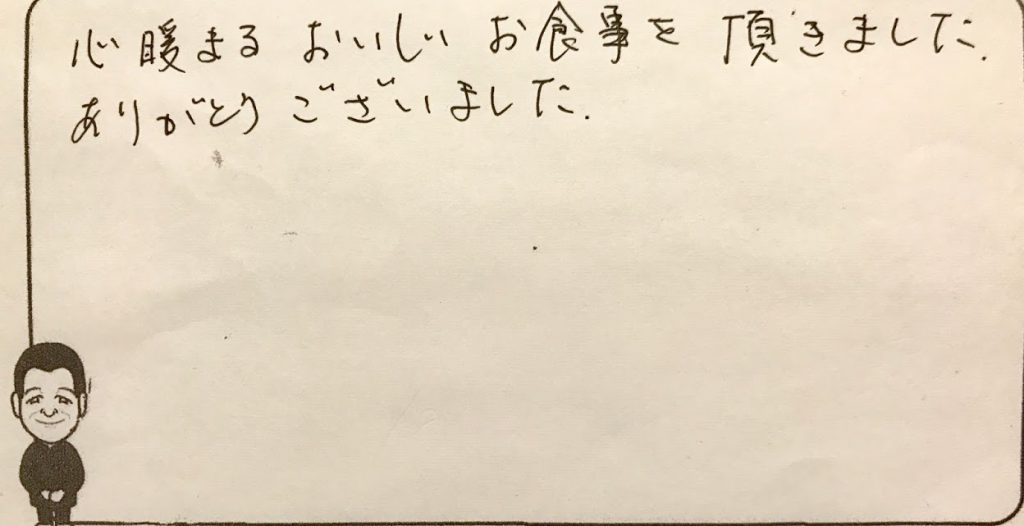 心暖まる おいしい お食事を 頂きました.
ありがとう ございました.